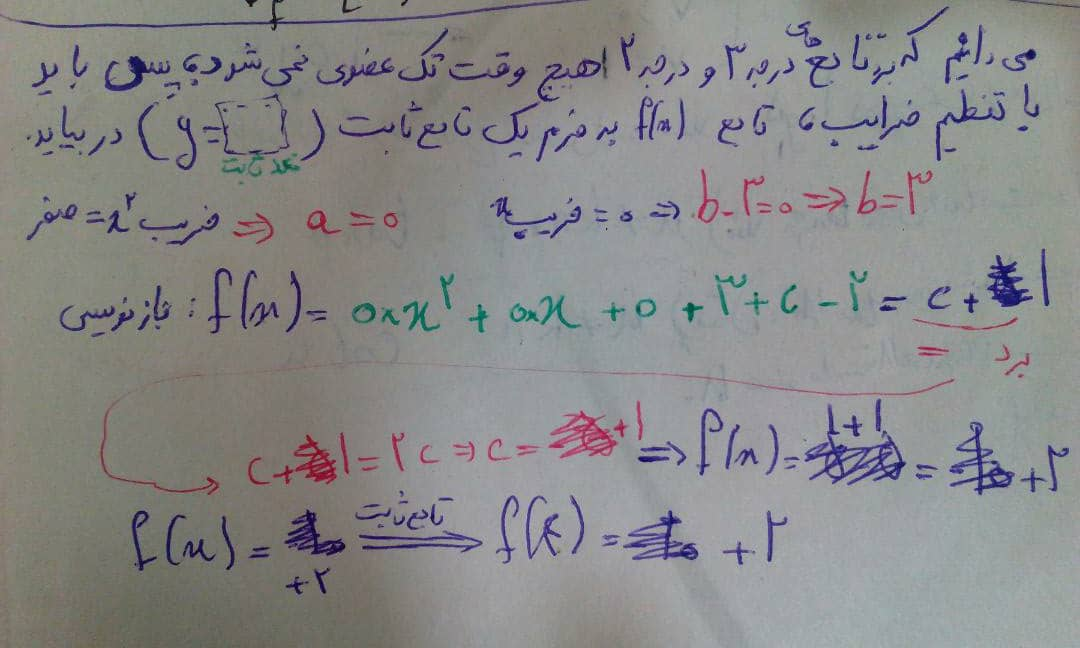 می دانیم که برد تابع های درجه ۳ و درجه ۲ هیچ وقت تک عضوی نمی شود، پس باید
با تنظیم ضرایب، تابع f(x) به فرم یک تابع ثابت (y=[ ]) در بیاید.
عدد ثابت
ضریب x۲ = صفر ⇒ a = 0
ضریب x = 0 ⇒ b-۳=0 ⇒ b=۳
بازنویسی : f(x) = 0×x۲ + 0×x + 0 + ۳ + c - ۲ = c + 1
برد =
c + 1 = ۲c ⇒ c = +1 ⇒ f(x) = 1+1 = +۲
f(x) = +۲ تابع ثابت ⟹ f(k) = +۲